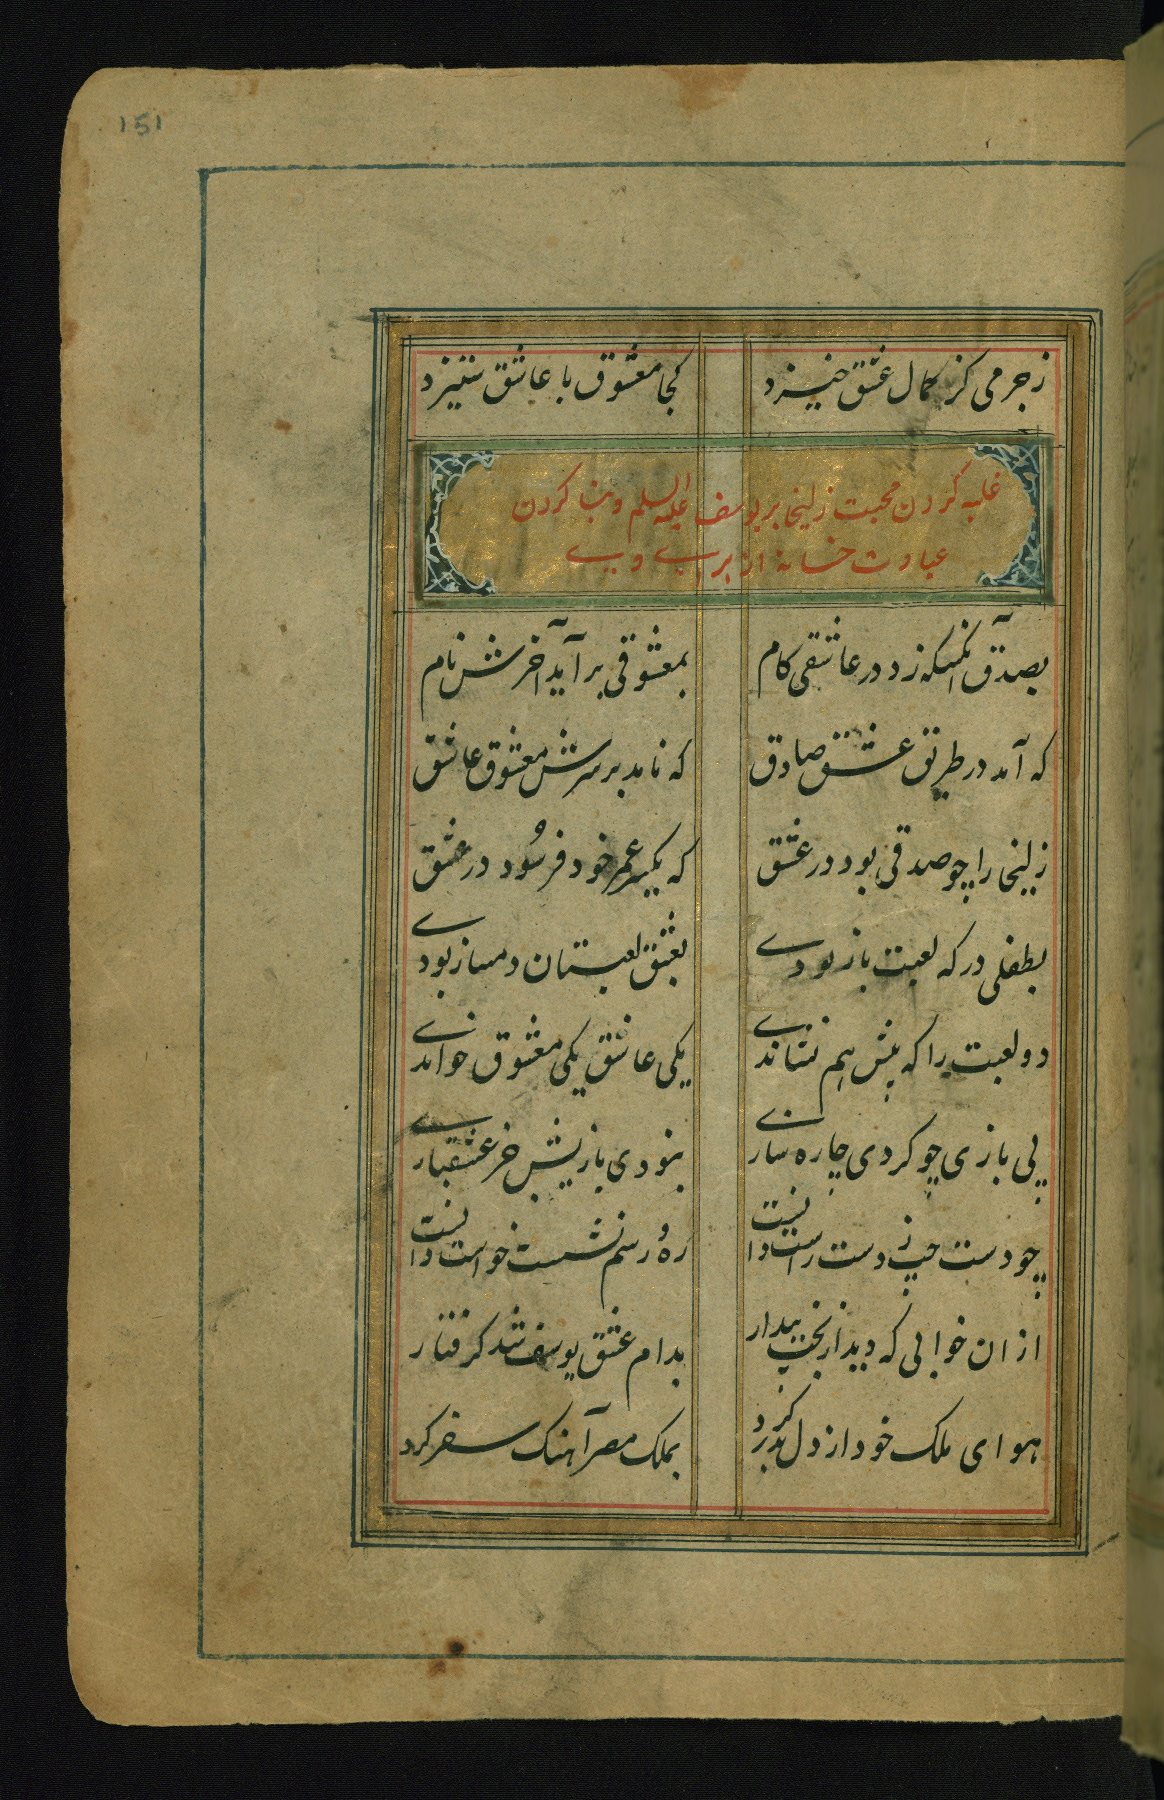 151
ز جرمی کز کمال عشق خیزد کجا معشوق با عاشق ستیزد
غلبه کردن محبت زلیخا بر یوسف علیه السلم و بنا کردن
عبادت خانه از برای وی
بصدق آنکسکه زد در عاشقی کام بمعشوقی بر آید آخرش نام
که آمد در طریق عشق صادق که نامد بر سرش معشوق عاشق
زلیخا را چو صدقی بود در عشق که یکسر عمر خود فرسود در عشق
بطفلی در که لعبت باز بودی بعشق لعبتان دمساز بودی
دو لعبت را که پیش هم نشاندی یکی عاشق یکی معشوق خواندی
پی بازی چو کردی چاره سازی نبودی بازیش جز عشقبازی
چو دست چپ ز دست راست دانست ره و رسم نشست خواست دانست
از ان خوابی که دید از بخت بیدار بدام عشق یوسف شد گرفتار
هوای ملک خود از دل بدر کرد بملک مصر آهنک سفر کرد